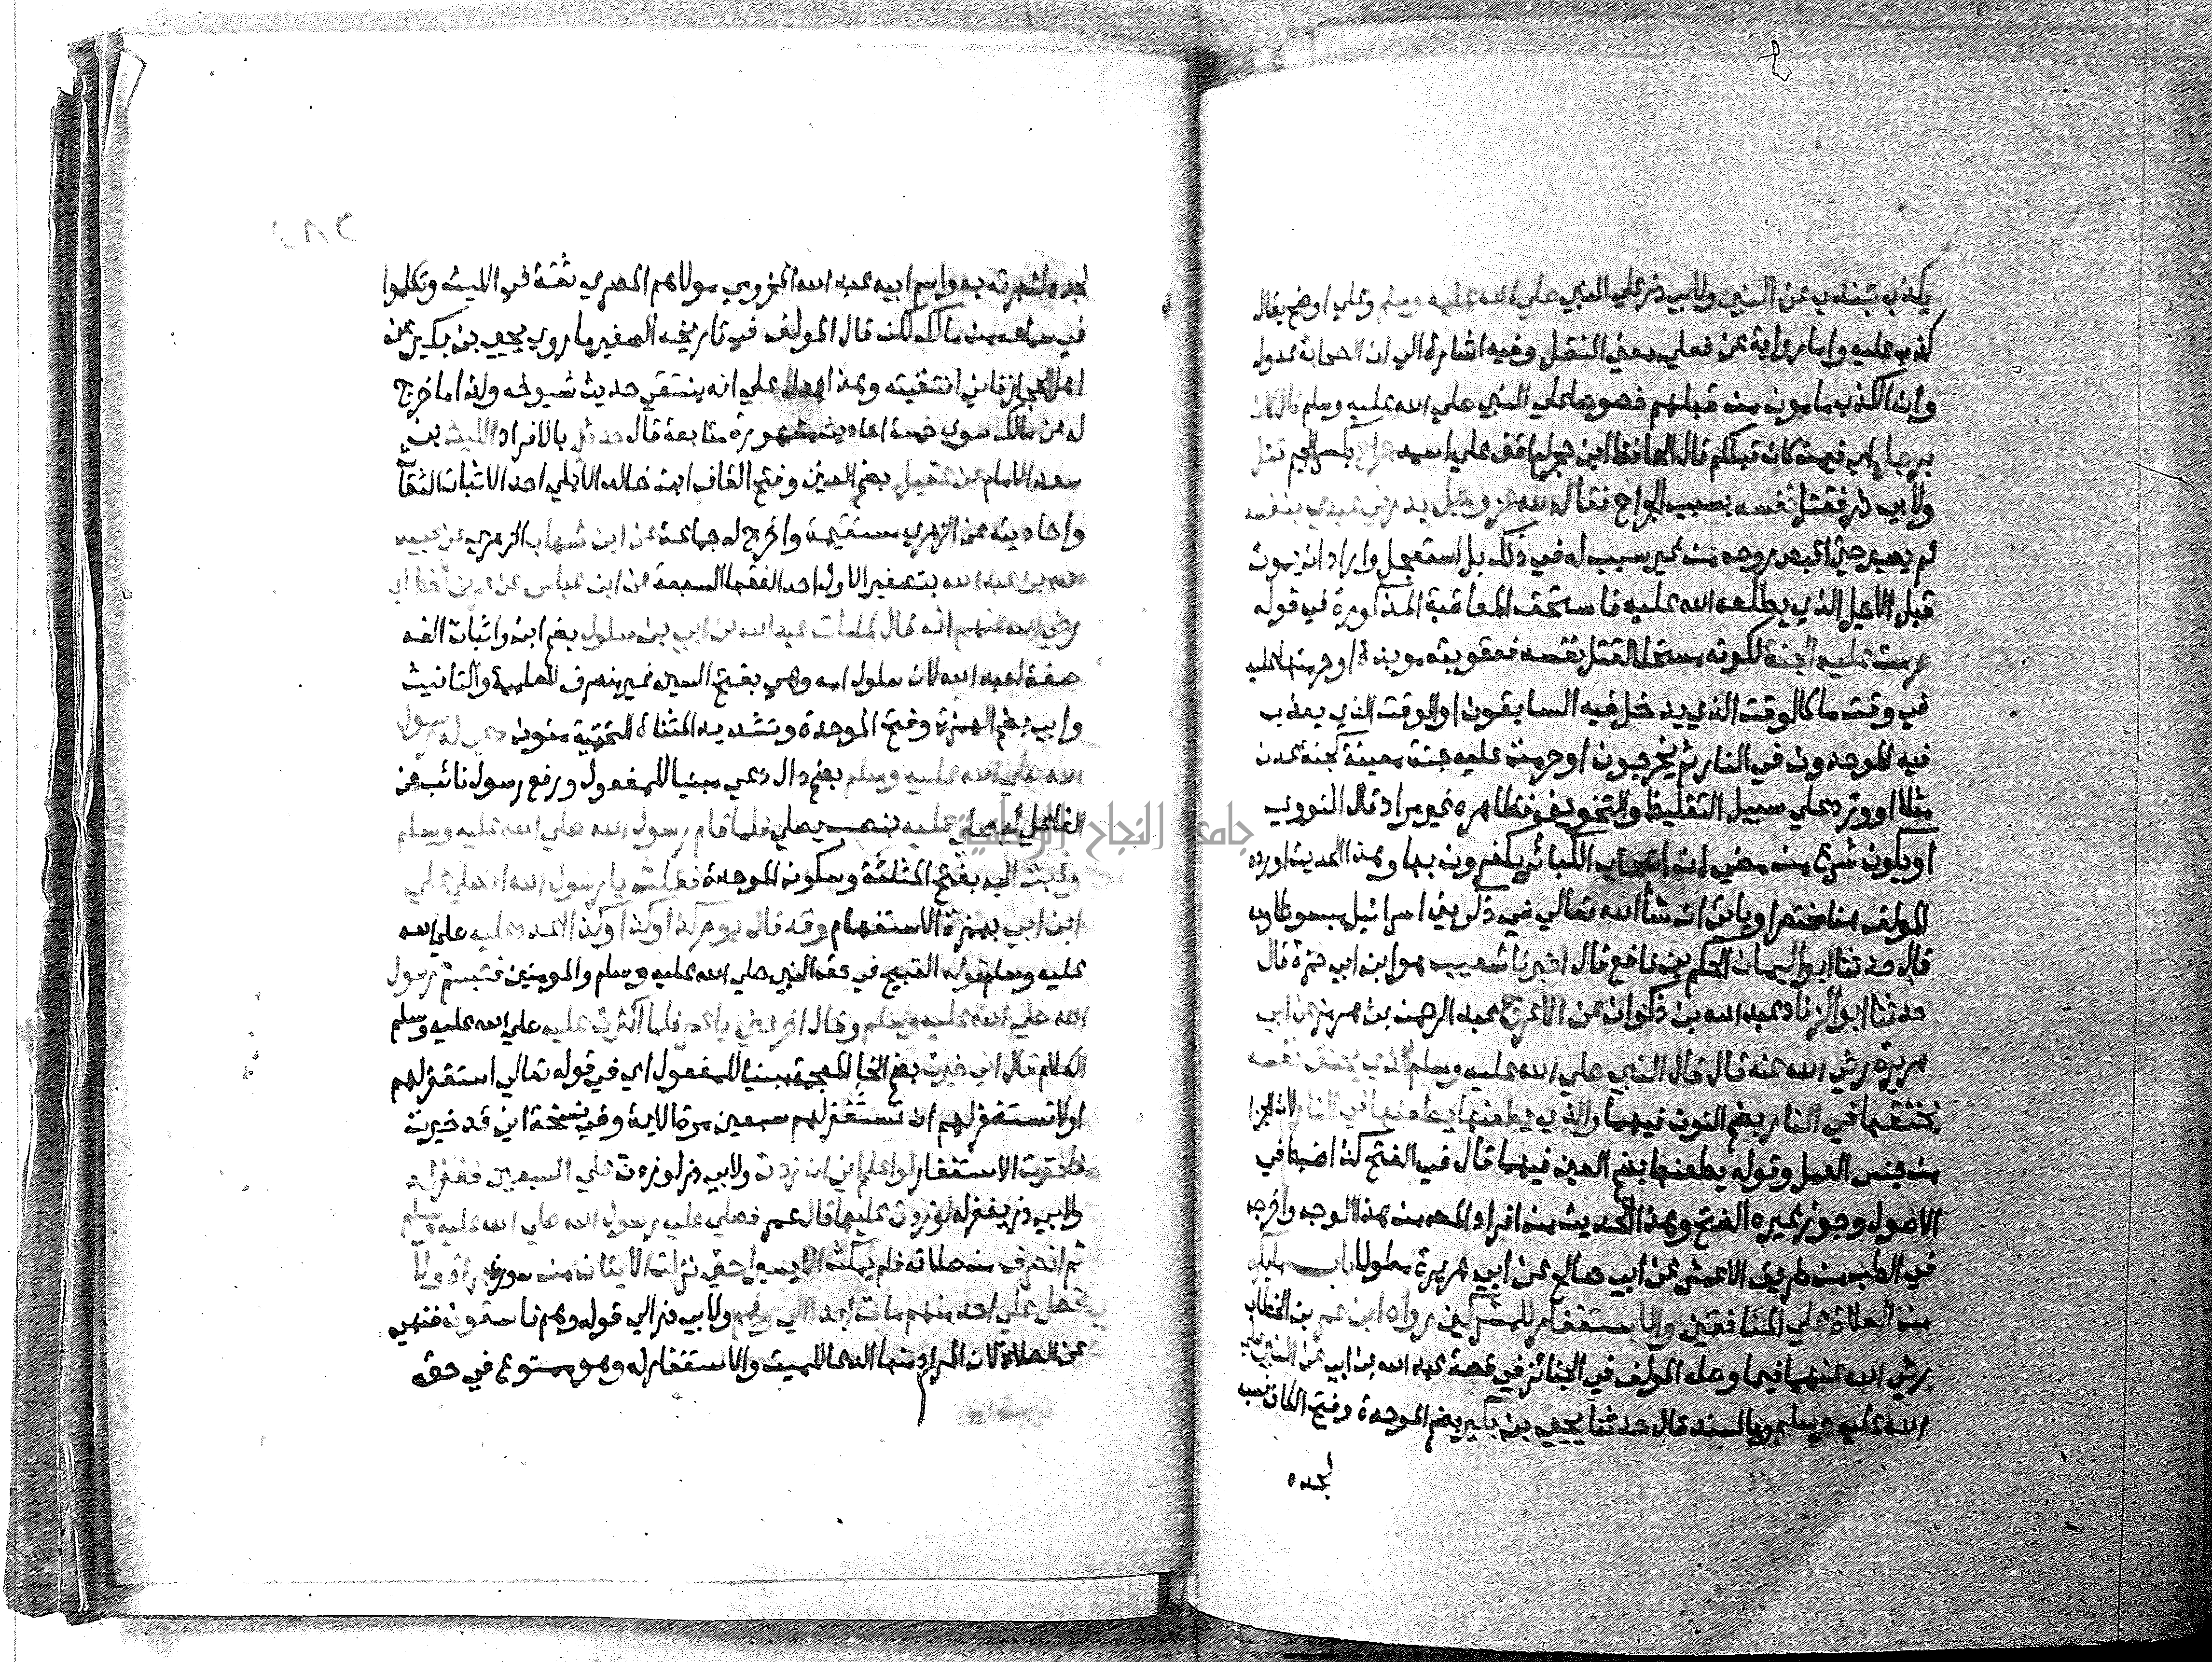 يكذب جندب عن النبي ولابي ذر على النبي صلى الله عليه وسلم وعلي اوضح يقال
كذب عليه واما رواية عن فعلي معني النقل وفيه اشارة الي ان الصحابة عدول
وان الكذب مامون من قبلهم خصوصا علي النبي صلي الله عليه وسلم قال كان
برجل اي فيمن كان قبلكم قال الحافظ ابن حجر لم اقف علي اسمه جراح بكسر الجيم قتل
ولابي ذر فقتل نفسه بسبب الجراح فقال الله عز وجل بدرني عبدي بنفسه
لم يصبر حتي اقبض روحه من غير سبب له في ذلك بل استعجل واراد ان يموت
قبل الاجل الذي يطلعه الله عليه فاستحق المعاقبة المذكورة في قوله
حرمت عليه الجنة لكونه مستحلا لقتل نفسه فعقوبته مويدة او حرمتها عليه
في وقت ما كالوقت الذي يدخل فيه السابقون او الوقت الذي يعذب
فيه الموحدون في النار ثم يخرجون او حرمت عليه جنة معينة كجنة عدن
مثلا او ورد علي سبيل التغليظ والتخويف فظاهره غير مراد قال النووي
او يكون شرع من مضي ان اصحاب الكباير يكفرون بها وهذا الحديث اورده
المولف هنا مختصرا وياتي ان شا الله تعالي في ذكر بني اسرائيل مبسوطا وبه
قال حدثنا ابو اليمان الحكم بن نافع قال اخبرنا شعيب هو ابن ابي حمزة قال
حدثنا ابو الزناد عبد الله بن ذكوان عن الاعرج عبد الرحمن بن هرمز عن ابي
هريرة رضي الله عنه قال قال النبي صلي الله عليه وسلم الذي يخنق نفسه
يخنقها في النار بضم النون فيهما والذي يطعنها يطعنها في النار لان الجزا
من جنس العمل وقوله يطعنها بضم العين فيهما قال في الفتح كذا ضبط في
الاصول وجوز غيره الفتح وهذا الحديث من افراد المصنف من هذا الوجه واخرجه
في الطب من طريق الاعمش عن ابي صالح عن ابي هريرة مطولا باب ما يكره
من الصلاة علي المنافقين والاستغفار للمشركين رواه ابن عمر بن الخطاب
رضي الله عنهما فيما وصله المولف في الجنائز في قصة عبد الله بن ابي عن النبي صلي
الله عليه وسلم وبالسند قال حدثنا يحيي بن بكير بضم الموحدة وفتح الكاف نسبه
لجده
لجده لشهرته به واسم ابيه عبد الله المخزومي مولاهم المصري ثقة في الليث وتكلموا
في سماعه من مالك لكن قال المولف في تاريخه الصغير ما روي يحيي بن بكير عن
اهل الحجاز فاني انتقيته وهذا يدل علي انه ينتقي حديث شيوخه ولذا ما خرج
له عن مالك سوي خمسة احاديث مشهورة متابعة قال حدثني بالافراد الليث بن
سعد الامام عن عقيل بضم العين وفتح القاف ابن خالد الايلي احد الاثبات الثقات
واحاديثه عن الزهري مستقيمة واخرج له جماعة عن ابن شهاب الزهري عن عبيد
الله بن عبد الله بتصغير الاول احد الفقها السبعة عن ابن عباس عن عمر بن الخطاب
رضي الله عنهم انه قال لما مات عبد الله بن ابي بن سلول بضم ابن واثبات الفه
صفة لعبد الله لان سلول امه وهي بفتح السين غير منصرف للعلمية والتانيث
وابي بضم الهمزة وفتح الموحدة وتشديد المثناة التحتية منون دعي له رسول
الله صلي الله عليه وسلم بضم دال دعي مبنيا للمفعول ورفع رسول نائب عن
الفاعل ليصلي عليه بنصب يصلي فلما قام رسول الله صلي الله عليه وسلم
وثبت اليه بفتح المثلثة وسكون الموحدة فقلت يا رسول الله اتصلي علي
ابن ابي بهمزة الاستفهام وقد قال يوم كذا وكذا وكذا اعدد عليه صلي الله
عليه وسلم قوله القبيح في حق النبي صلي الله عليه وسلم والمومنين فتبسم رسول
الله صلي الله عليه وسلم وقال اخر عني يا عمر فلما اكثرت عليه صلي الله عليه وسلم
الكلام قال اني خيرت بضم الخا المعجمة مبنيا للمفعول اي في قوله تعالي استغفر لهم
اولا تستغفر لهم ان تستغفر لهم سبعين مرة الاية وفي نسخة اني قد خيرت
فاخترت الاستغفار لو اعلم اني ان زدت ولابي ذر لو زدت علي السبعين فغفر له
ولابي ذر يغفر له لزدت عليها قال عمر فصلي عليه رسول الله صلي الله عليه وسلم
ثم انصرف من صلاته فلم يمكث الا يسيرا حتي نزلت الايتان من سورة براة ولا
تصل علي احد منهم مات ابدا الي وهم ولابي ذر الي قوله وهم فاسقون فنهيه
عن الصلاة لان المراد منها الدعا للميت والاستغفار له وهو ممنوع في حق